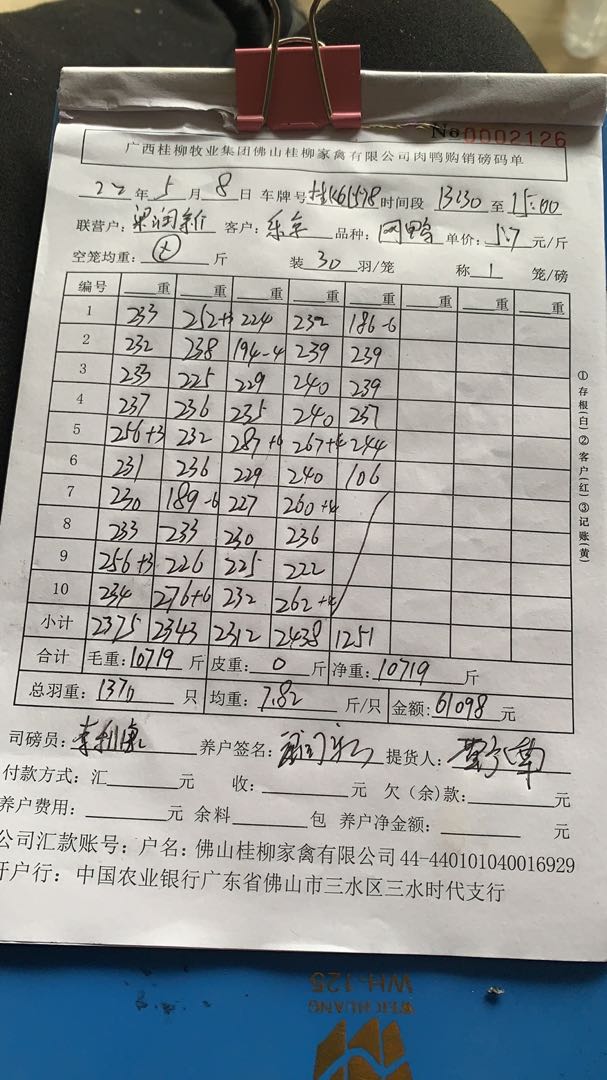 No 0002126
广西桂柳牧业集团佛山桂柳家禽有限公司肉鸭购销磅码单
22 年 5 月 8 日 车牌号 时间段 13:30 至 15:00
联营户: 客户: 品种: 单价: 5.7 元/斤
空笼均重: 斤 装 30 羽/笼 称 1 笼/磅
编号 重 重 重 重 重 重 重 重
1 233 262+3 224 232 186-6
2 232 238 194-4 239 239
3 233 225 229 240 239
4 237 236 235 240 237
5 256+3 232 287+6 267+4 244
6 231 236 229 240 106
7 230 189-6 227 260+4
8 233 233 230 236
9 256+3 226 225 222
10 234 276+6 232 262+4
小计 2375 2343 2312 2438 1251
合计 毛重: 10719 斤 皮重: 0 斤 净重: 10719 斤
总羽重: 1370 只 均重: 7.82 斤/只 金额: 61098 元
司磅员: 养户签名: 提货人:
付款方式: 汇 元 收: 元 欠(余)款: 元
养户费用: 元 余料 包 养户净金额: 元
公司汇款账号: 户名: 佛山桂柳家禽有限公司 44-440101040016929
开户行: 中国农业银行广东省佛山市三水区三水时代支行
①存根(白)②客户(红)③记账(黄)
WH-125
WEICHUANG